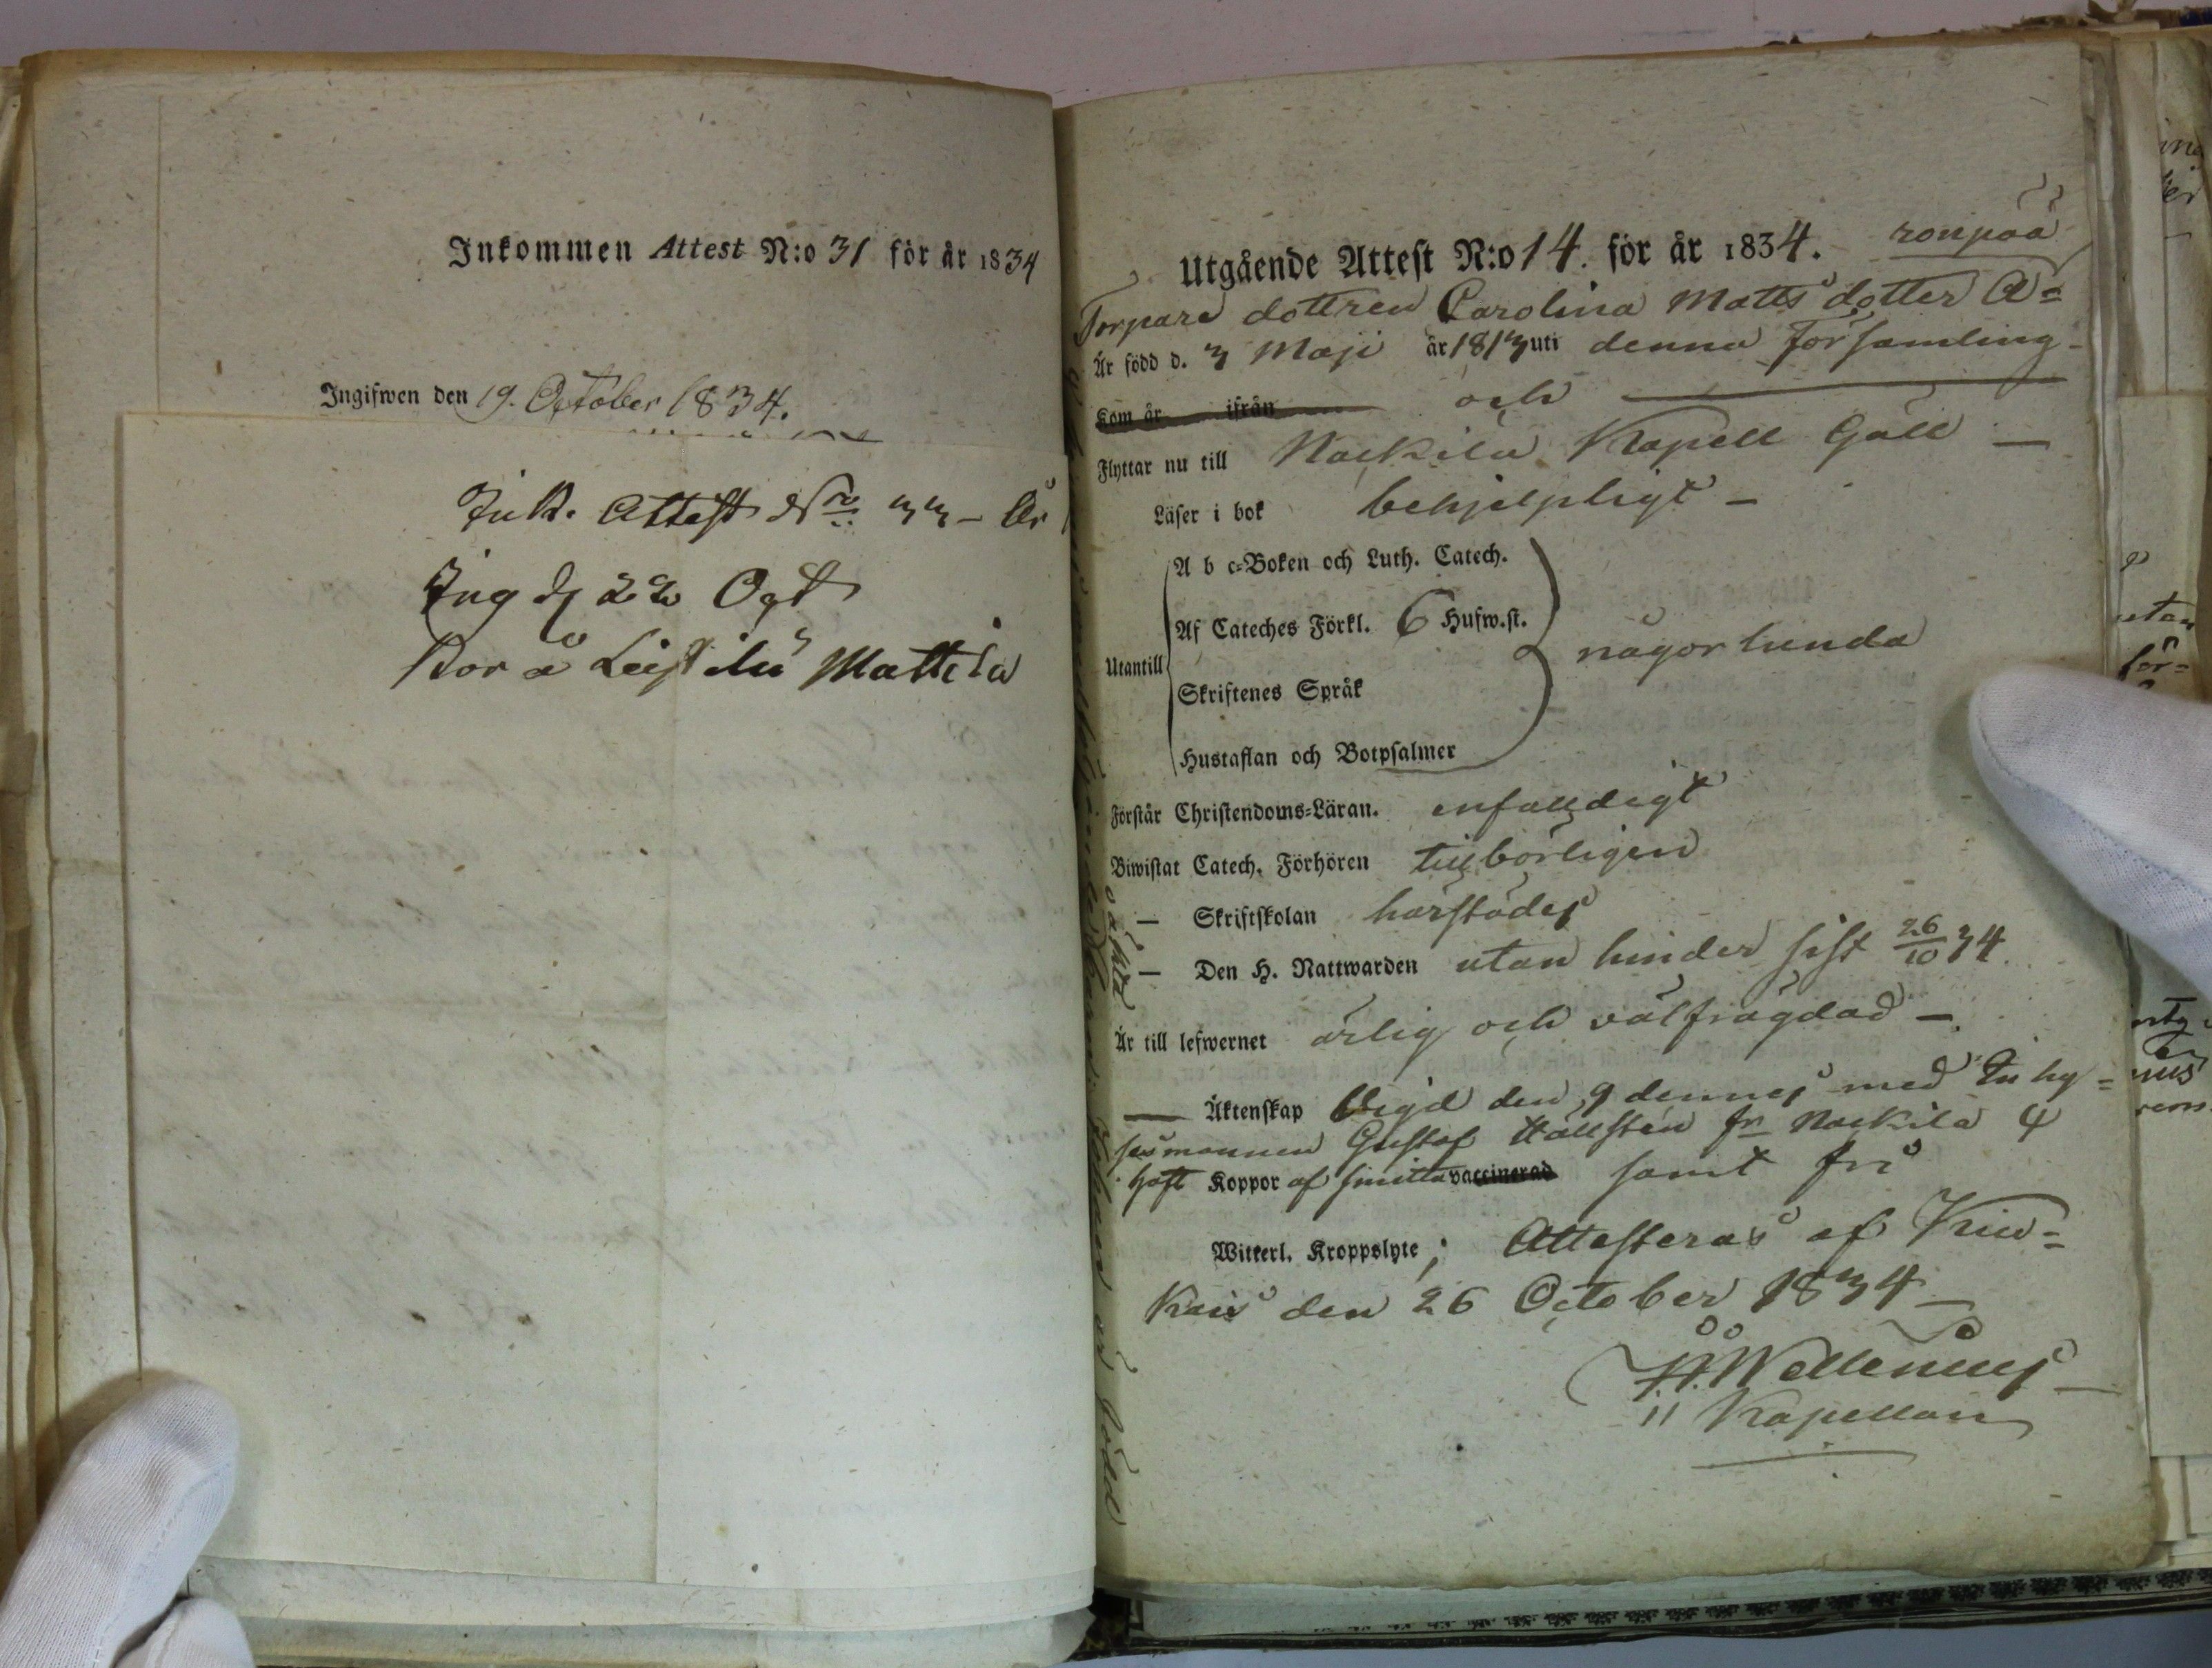 Inkommen Attest N:o 31 för år 1834
Ingifwen den 19. October 1834.
Ink. Attest No 33 – År
Ing d 22 Oct
Bor å Leistilä Mattila
Utgående Attest N:o 14. för år 1834.
ronpää
Torpare dottren Carolina Matts dotter A=
Är född d. 3 Maji år 1813 uti denna Församling-
Kom år ifrån och
Flyttar nu till Nackila Kapell Gäll –
Läser i bok behjelpligt –
A b c-Boken och Luth. Catech.
Af Cateches Förkl. 6 Hufw.st.
Utantill någorlunda
Skriftenes Språk
Hustaflan och Botpsalmer
Förstår Christendoms-Läran. enfalldigt
Biwistat Catech. Förhören tillbörligen
— Skriftskolan härstädes
— Den H. Nattwarden utan hinder sist 26/10 34.
Är till lefwernet ärlig och välfrägdad –
— Äktenskap Vigd den 9 dennes med Inhy=
sesmannen Gustaf Hällsten fr. Nackila
haft Koppor af smitta vaccinerad samt fri
Witterl. Kroppslyte; Attesteras af Kiu=
kais den 26 October 1834
Wallenius
Kapellan